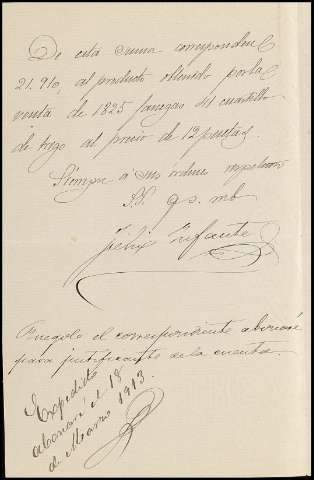 De esta suma corresponden
21.910, al producto obtenido por la
venta de 1825 fanegas 3/4 cuartillo
de trigo al precio de 12 pesetas.
Siempre a sus órdenes
S.S. q. s. m. b.
Félix Infante
Ruegole el correspondiente abonaré
para justificante de la cuenta.
Expedido
abonaré el 18
de Marzo 1913.